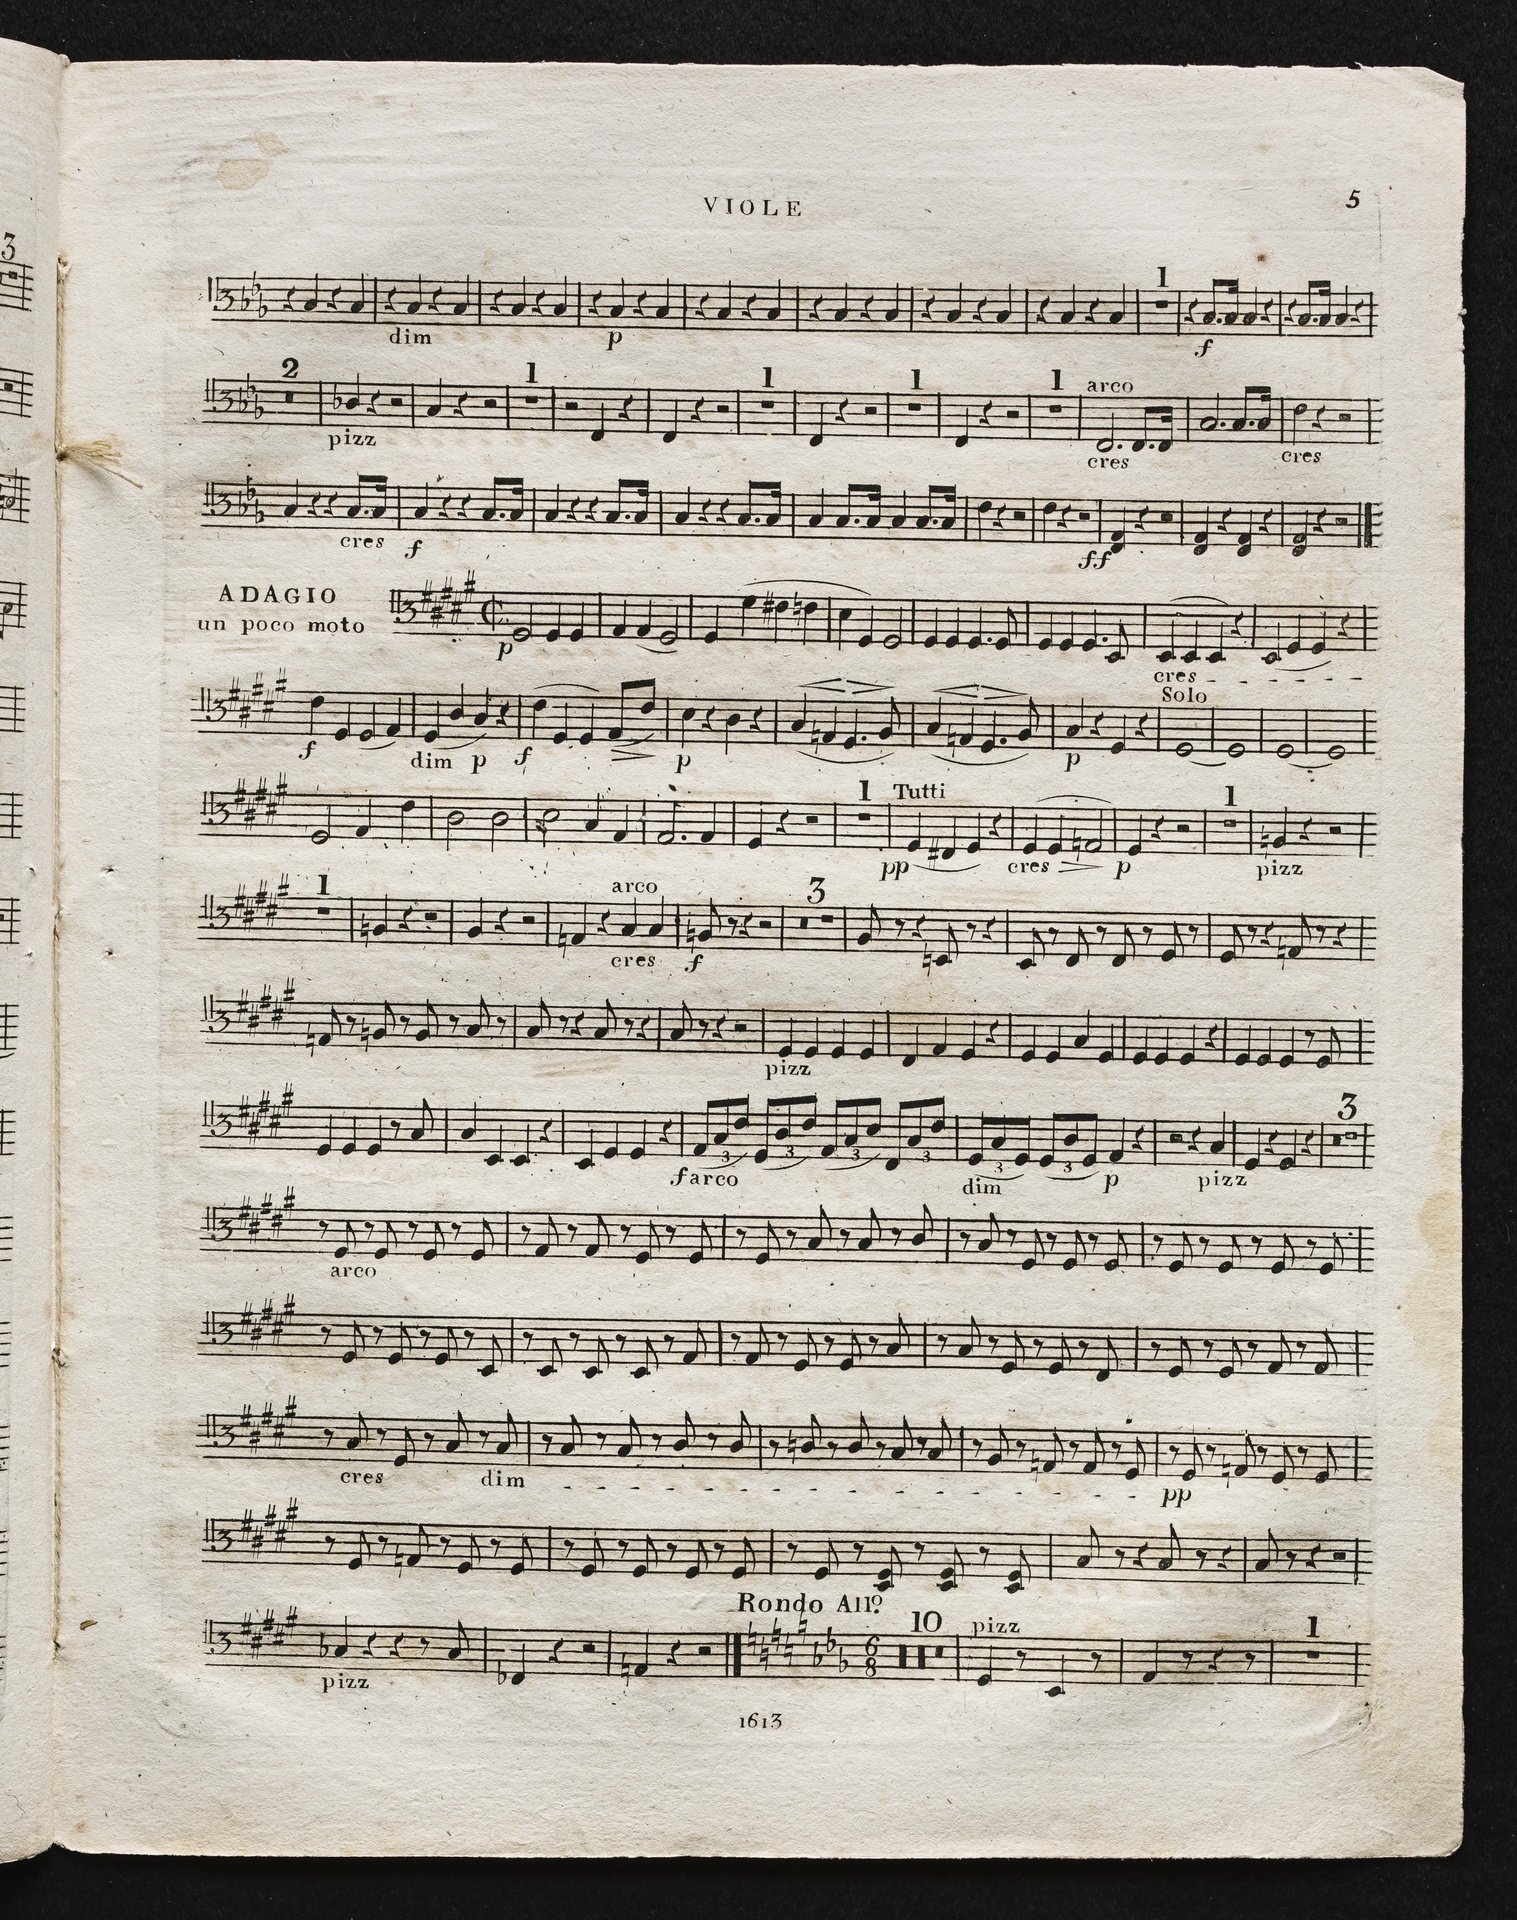 3
VIOLE
5
1
dim p f
2 1 1 1 1 arco
pizz cres cres
cres f ff
ADAGIO
un poco moto
p cres
Solo
f dim p f p p
1 Tutti 1
pp cres p pizz
1 arco 3
cres f
pizz
3
3 3 3 3 3 3
f arco dim p pizz
arco
cres dim pp
Rondo Allo.
10 pizz 1
6
8
pizz
1613